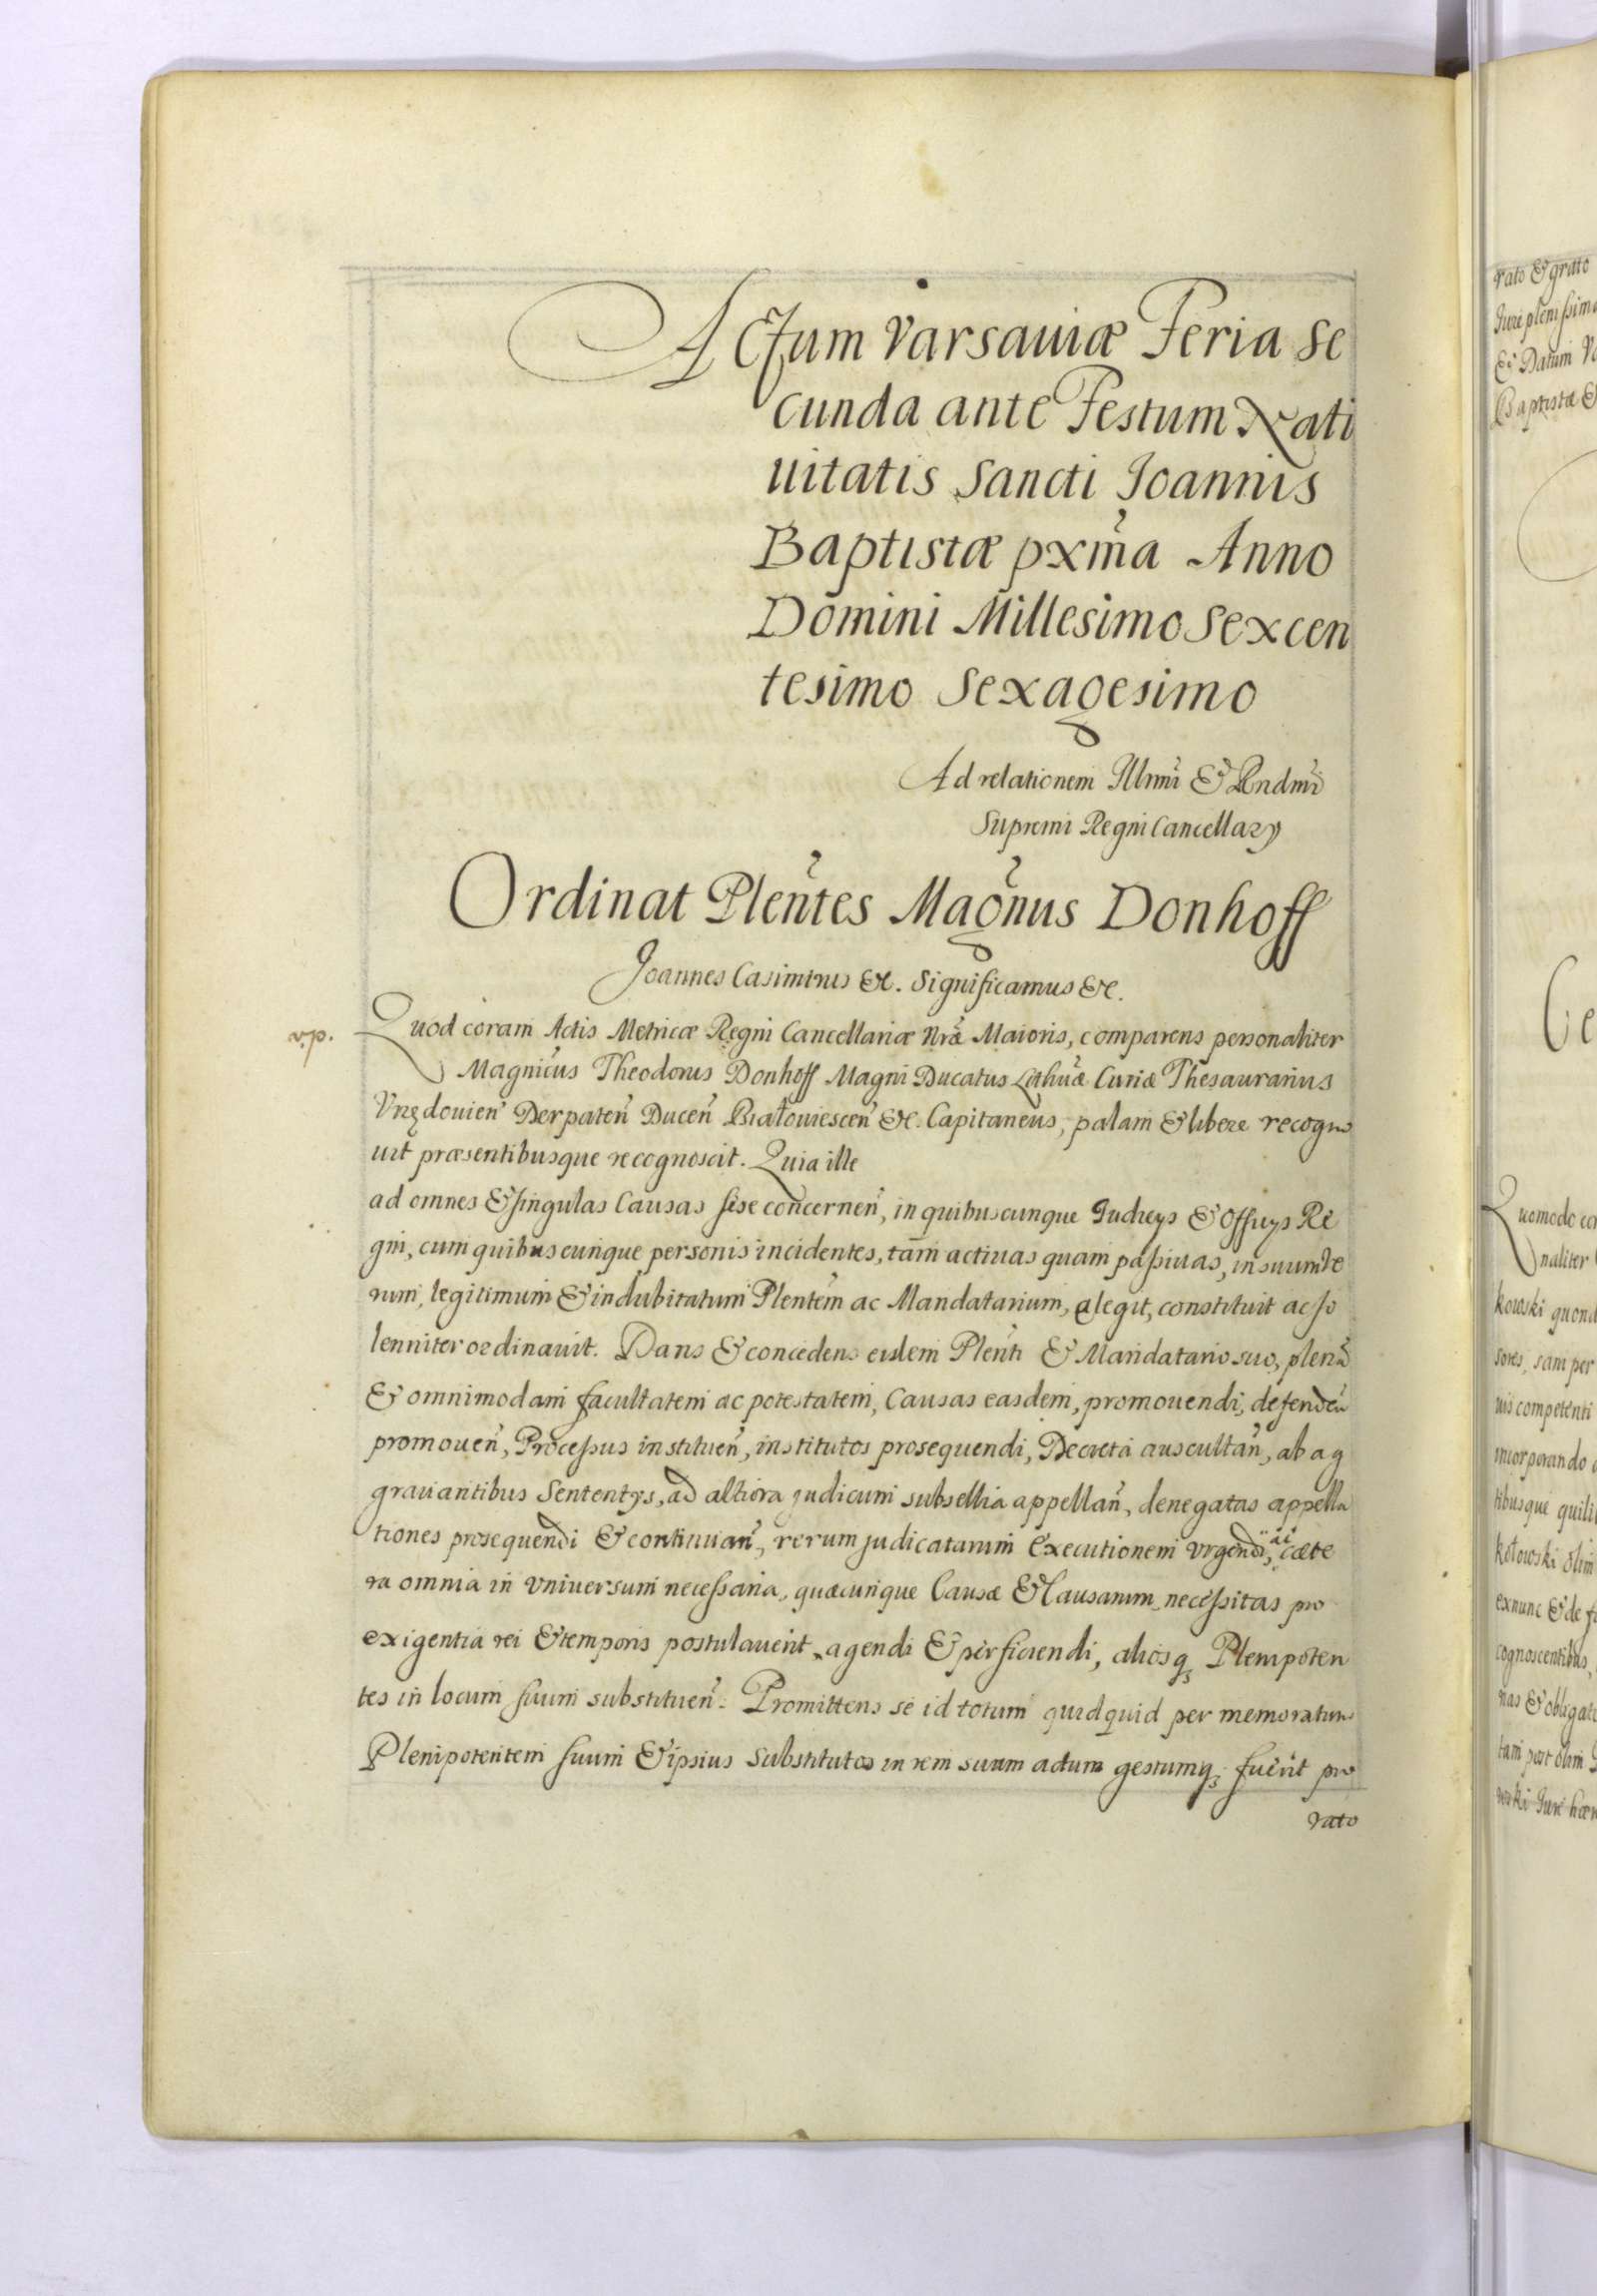 Actum Varsauiæ Feria Se
cunda ante Festum Nati
uitatis Sancti Joannis
Baptistæ pxm̃a Anno
Domini Millesimo Sexcen
tesimo Sexagesimo
Ad relationem Illmi̇ & Rndmi̇
Supremi Regni Cancellarÿ
Ordinat Plen̄tes Magnus Donhoff
Joannes Casimirus &c. Significamus &c.
Quod coram Actis Metricæ Regni Cancellariæ Nræ Maioris, comparens personaliter
Magnicus Theodorus Donhoff Magni Ducatus Lithuæ Curiæ Thesaurarius
Vrzędouien̄ Derpaten̄ Ducen̄ Białouiescen̄ &c. Capitaneus, palam & libere recogno
uit præsentibusque recognoscit. Quia ille
ad omnes & singulas Causas sese concernen̄, in quibuscunque Judicÿs & Officÿs Re
gni, cum quibuscunque personis incidentes, tam actiuas quam passiuas, in suum Ve
rum, legitimum & indubitatum Plentem ac Mandatarium, elegit, constituit ac so
lenniter ordinauit. Dans & concedens eidem Plenti & Mandatario suo, plenã
& omnimodam facultatem ac potestatem, Causas easdem, promouendi, defenden̄
promouen̄, Processus instituen̄, institutos prosequendi, Decreta auscultan̄, ab ag
grauantibus Sententÿs, ad altiora judicum subsellia appellan̄, denegatas appella
tiones prosequendi & continuan̄, rerum judicatarum Executionem vrgendi, ac cæte
ra omnia in vniversum necessaria, quæcunque Causæ & Causarum necessitas pro
exigentia rei & temporis postulauerit, agendi & perficiendi, aliosq; Plenipoten
tes in locum suum substituen̄. Promittens se id totum quidquid per memoratum
Plenipotentem suum & ipsius substitutos in rem suam actum gestumq; fuerit pro
rato
rato & grato
Jure plenissim
& Datum Va
Baptistæ &
Ce
Quomodo co
naliter
kowski quond
sores, sam per
uis competenti
incorporando
tibusque quili
kotowski olim
exnunc & de f
cognoscentibus,
nas & obligat
tam post olim
wski Jure hær